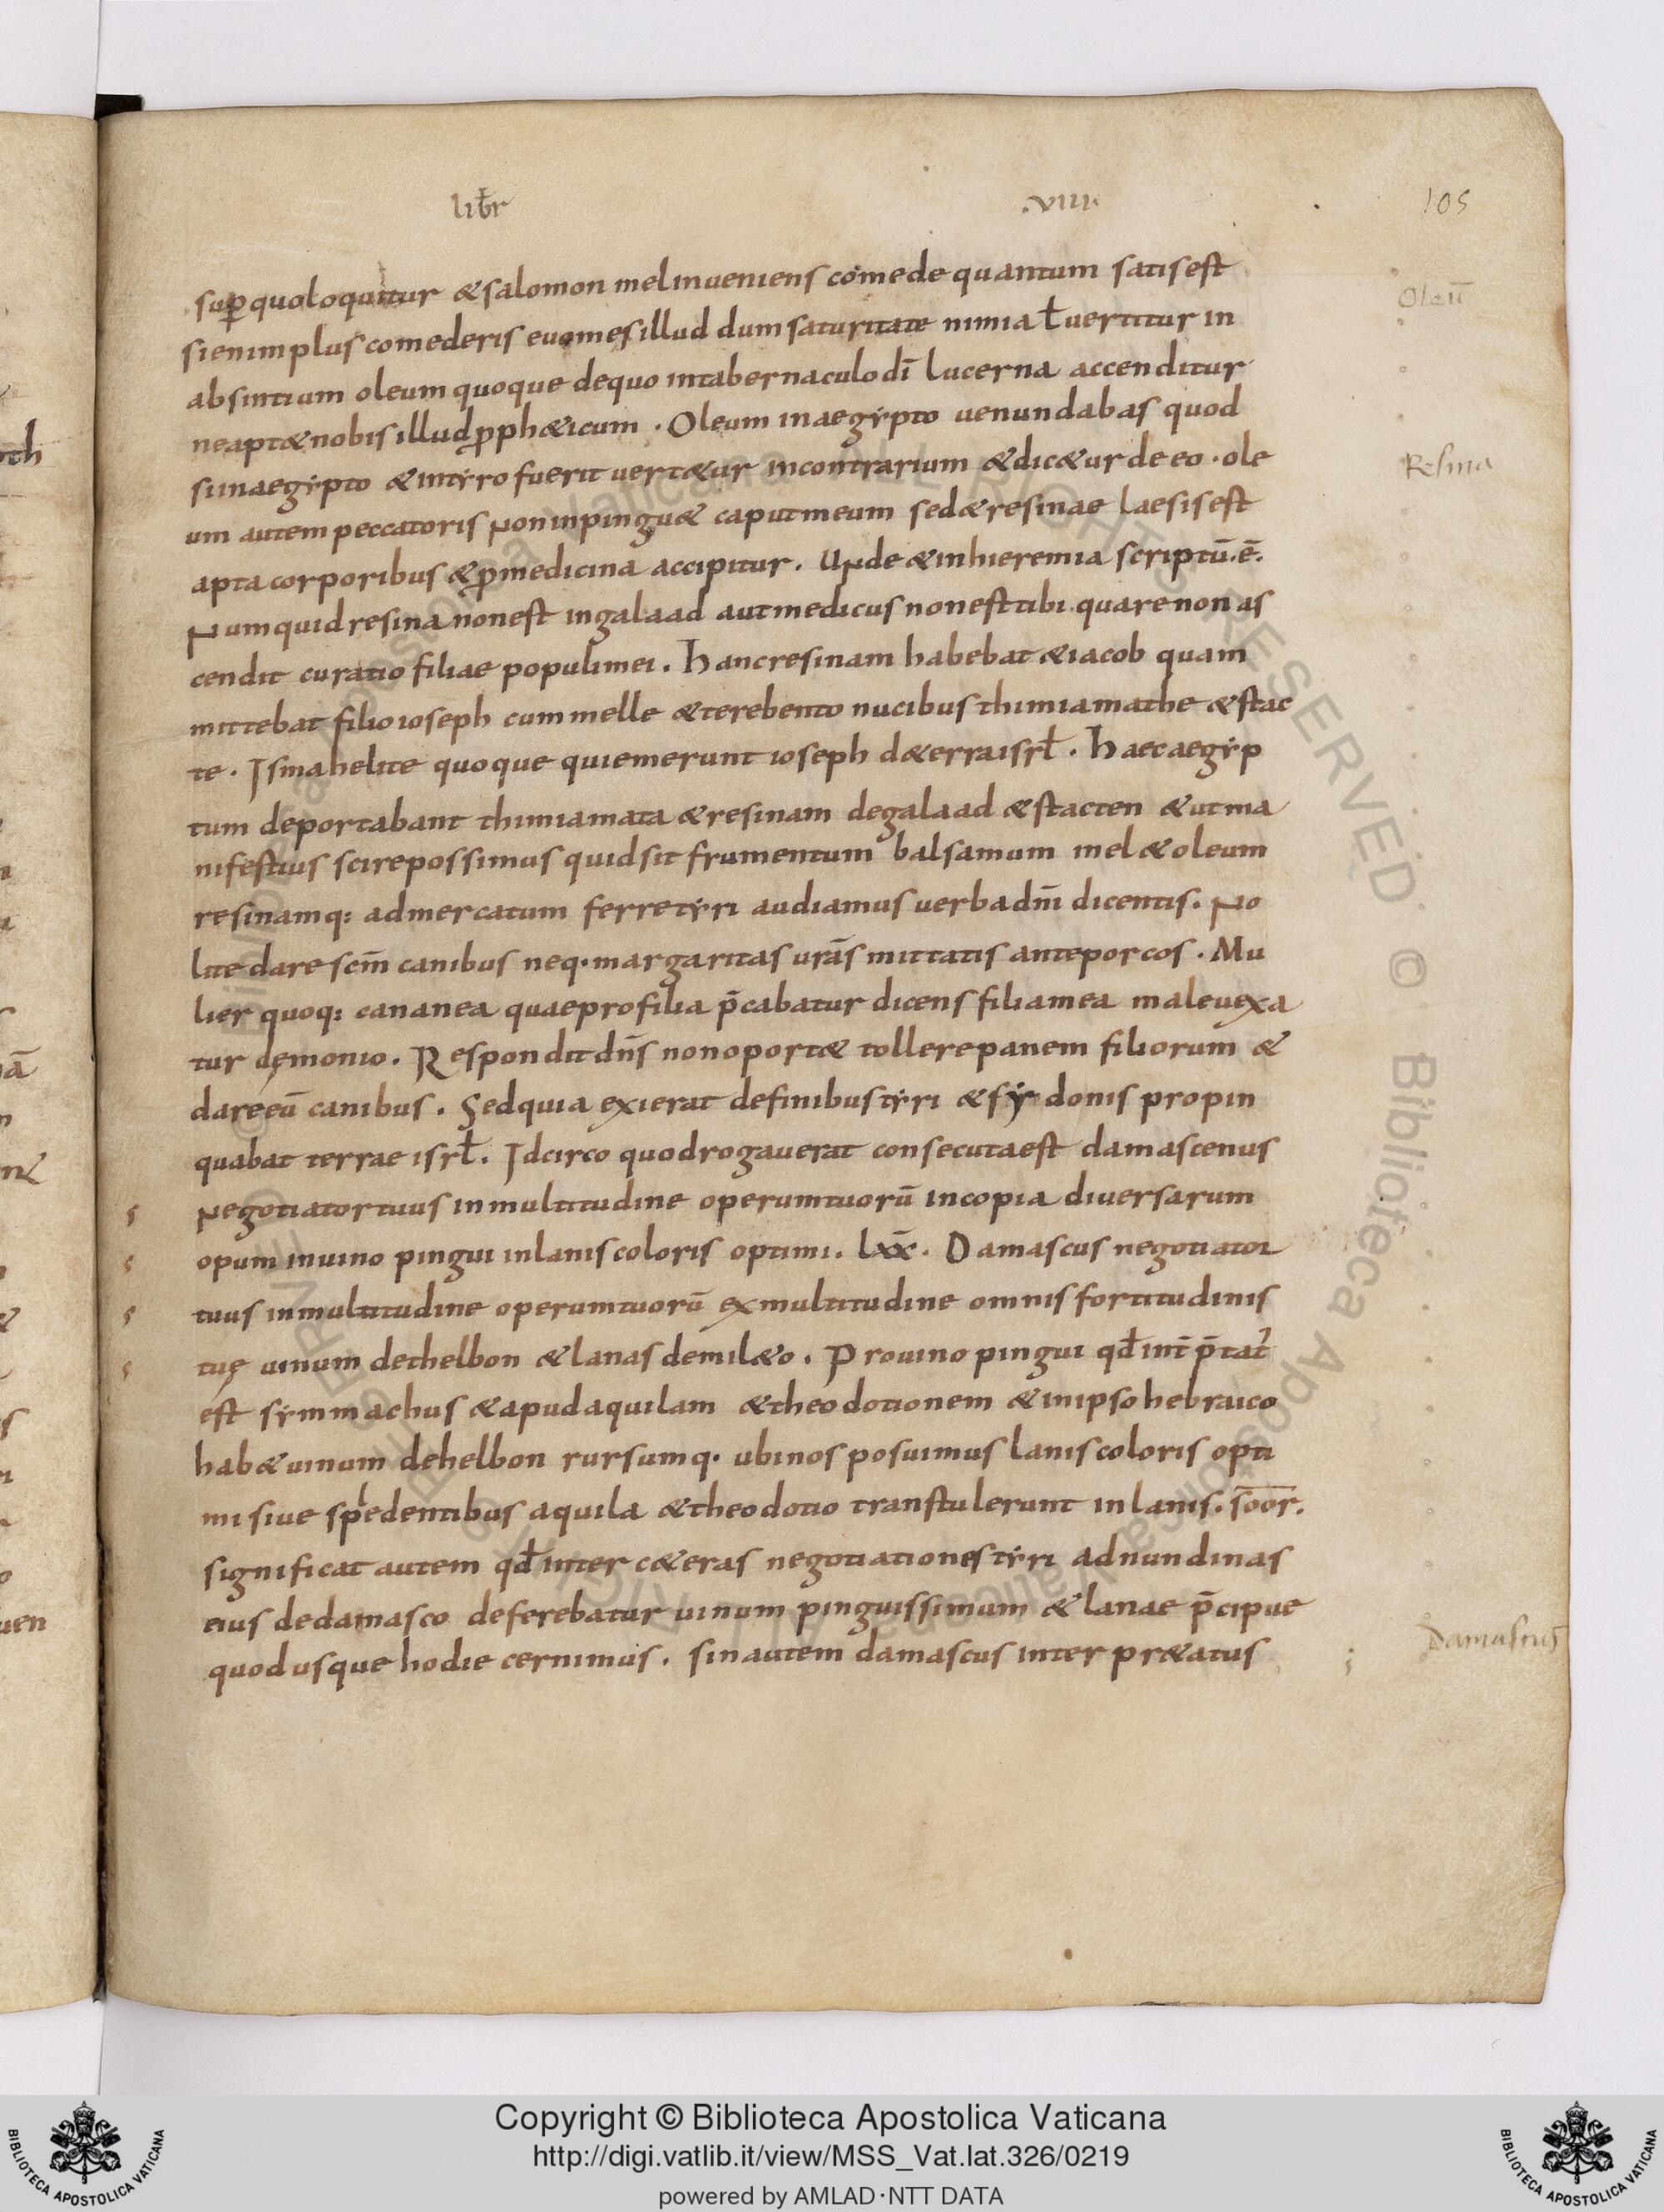 libr̄ .VIIII. 105
sup̱ quo loquitur & salomon mel inueniens comede quantum satis est
si enim plus comederis euomes illud dum saturitate nimia ł uertitur in
absintium oleum quoque de quo in tabernaculo dī lucerna accenditur
ne apt& nobis illud ꝓph&icum . Oleum in aegẏpto uenundabas quod
si in aegẏpto & in tẏro fuerit uert&ur in contrarium & dic&ur de eo . ole
um autem peccatoris Non inpingu& caput meum sed & resinae laesis est
apta corporibus & ꝓ medicina accipitur . UNde & in hieremia scriptū . ē .
Numquid resina non est in galaad aut medicus non est tibi quare non as
cendit curatio filiae populi mei . hanc resinam habebat & iacob quam
mittebat filio ioseph cum melle & terebento nucibus thimiamathe & stac
te . Ismahelite quoque qui emerunt ioseph d& erra isrł . haec aegẏp
tum deportabant thimiamata & resinam de galaad & stacten & ut ma
nifestius scire possimus quid sit frumentum balsamum mel & oleum
resinamq: ad mercatum ferre tẏri audiamus uerba dnī dicentis . No
lite dare scm̄ canibus neq· margaritas urās mittatis ante porcos . Mu
lier quoq: cananea quae pro filia p̄cabatur dicens filia mea male uexa
tur dęmonio . Respondit dn̄s non oport& tollere panem filiorum &
dare eū canibus . Sed quia exierat de finibus tẏri & sẏdonis propin
quabat terrae isrł . Idcirco quod rogauerat consecuta est damascenus
Negotiator tuus in multitudine operum tuorū in copia diuersarum
opum in uino pingui in lanis coloris optimi . lxx̄ . Damascus negotiator
tuus in multitudine operum tuorū ex multitudine omnis fortitudinis
tuę uinum de thelbon & lanas de mil&o . Pro uino pingui qđ int̄ p̄tat'
est sẏmmachus & apud aquilam & theodotionem & in ipso hebraico
hab& uinum de helbon rursumq· ubi nos posuimus lanis coloris opti
mi siue spledentibus aquila & theodotio transtulerunt in lanis . soor̄ .
significat autem qđ inter c&eras negotiationes tẏri ad nundinas
eius de damasco deferebatur uinum pinguissimum & lanae p̄cipue
quod usque hodie cernimus . sin autem damascus inter pr&atus
Oleū
Resina
Damascus
Copyright © Biblioteca Apostolica Vaticana
http://digi.vatlib.it/view/MSS_Vat.lat.326/0219
powered by AMLAD·NTT DATA
BIBLIOTECA APOSTOLICA VATICANA
BIBLIOTECA APOSTOLICA VATICANA